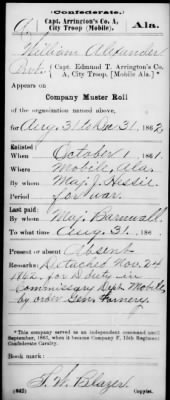 (Confederate.)
A Capt. Arrington's Co. A, Ala.
City Troop (Mobile).
William Alexander
Pvt., Capt. Edmund T. Arrington's Co.
A, City Troop (Mobile Ala.)*
Appears on
Company Muster Roll
of the organization named above,
for Aug. 31 to Dec 31, 1862.
Enlisted:
When October 1, 1861.
Where Mobile, Ala.
By whom Maj. J. Hessie
Period for war.
Last paid:
By whom Maj. Barnwall
To what time Aug. 31, 186
Present or absent Absent
Remarks: Detached Nov. 24
1862, for duty in
Commissary Dept. Mobile
by order Gen.
*This company served as an independent command until
September, 1863, when it became Company F, 15th Regiment
Confederate Cavalry.
Book mark:
(642) Copyist.